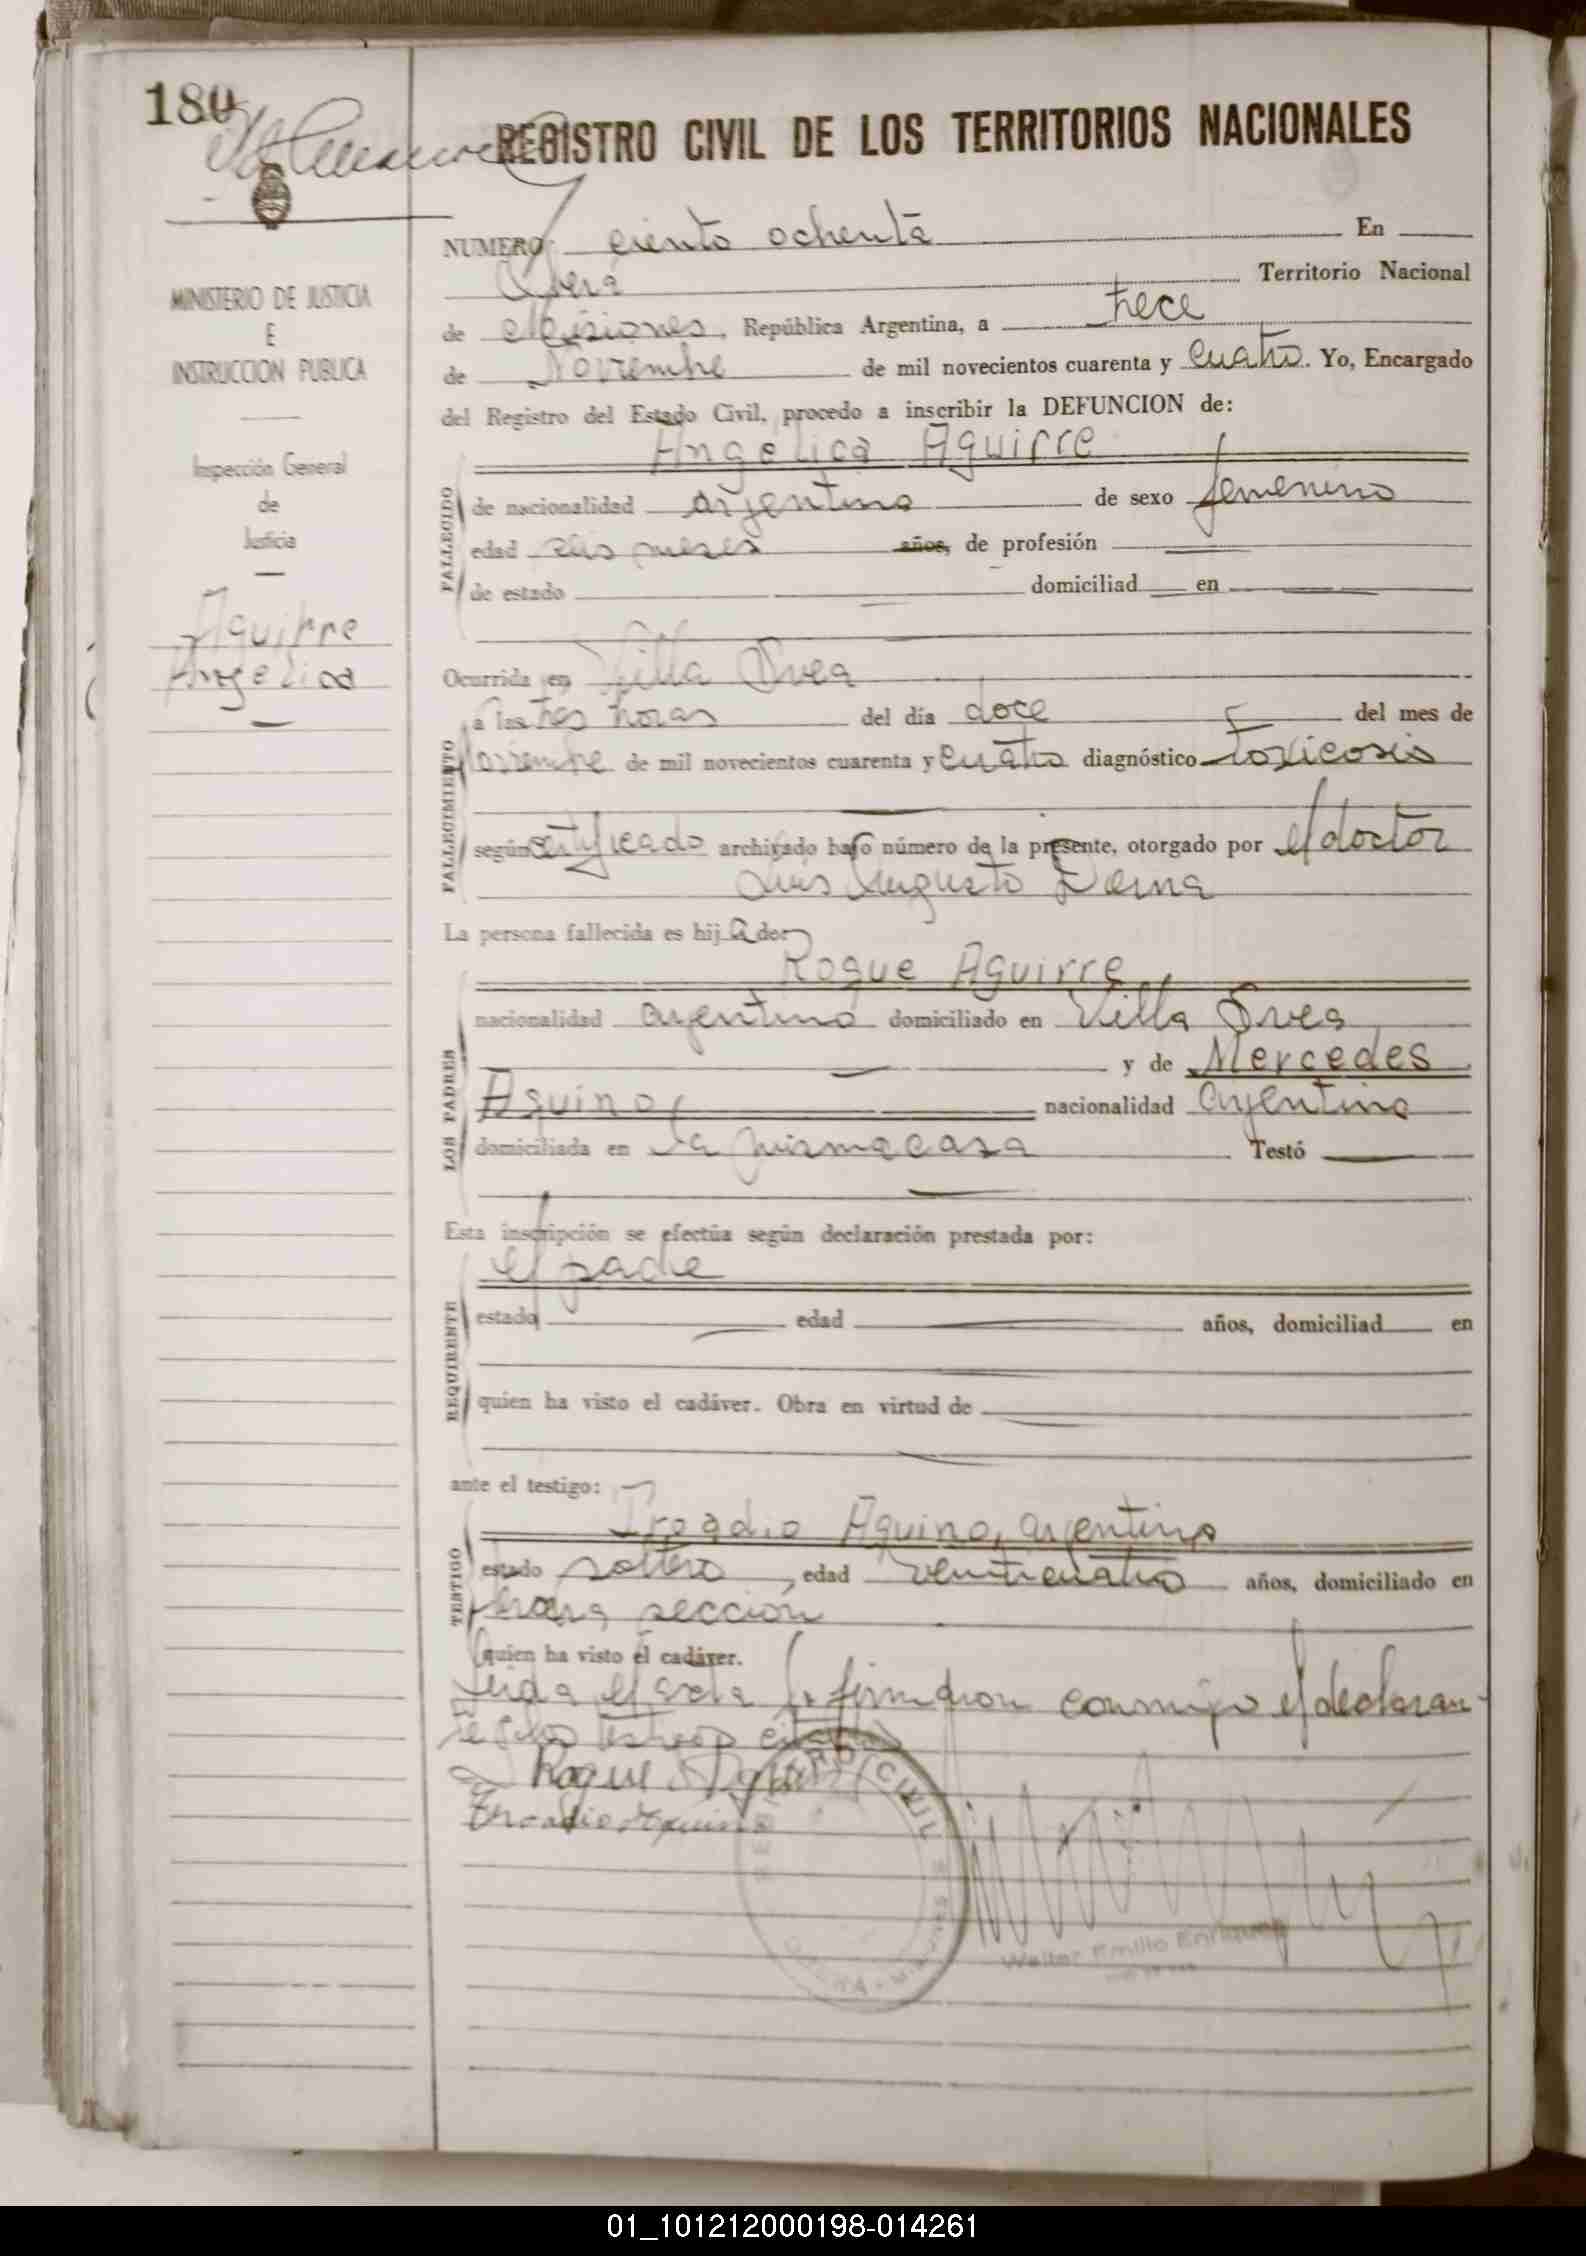 180
REGISTRO CIVIL DE LOS TERRITORIOS NACIONALES
NUMERO ciento ochenta En
Oberá Territorio Nacional
de Misiones, República Argentina, a trece
de Noviembre de mil novecientos cuarenta y cuatro. Yo, Encargado
del Registro del Estado Civil, procedo a inscribir la DEFUNCION de:
MINISTERIO DE JUSTICIA
E
INSTRUCCION PUBLICA
Inspección General
de
Justicia
Aguirre
Angelica
FALLECIDO
Angélica Aguirre
de nacionalidad argentina de sexo femenino
edad seis meses años, de profesión
de estado domiciliad en
FALLECIMIENTO
Ocurrida en Villa Svea
a las tres horas del día doce del mes de
Noviembre de mil novecientos cuarenta y cuatro diagnóstico toxicosis
según certificado archivado bajo número de la presente, otorgado por el doctor
Luis Augusto Derna
La persona fallecida es hija de:
LOS PADRES
Roque Aguirre
nacionalidad argentino domiciliado en Villa Svea
y de Mercedes
Aquino, nacionalidad argentina
domiciliada en la misma casa Testó
Esta inscripción se efectúa según declaración prestada por:
REQUIRENTE
el padre
estado edad años, domiciliad en
quien ha visto el cadáver. Obra en virtud de
ante el testigo:
TESTIGO
Troadio Aquino, argentino
estado soltero, edad veinticuatro años, domiciliado en
sección
quien ha visto el cadáver.
Leida el acta la firmaron conmigo el declaran-
te y los testigos
Roque Aguirre
Troadio Aquino
REGISTRO CIVIL
Walter Emilio Enriquez
01_101212000198-014261